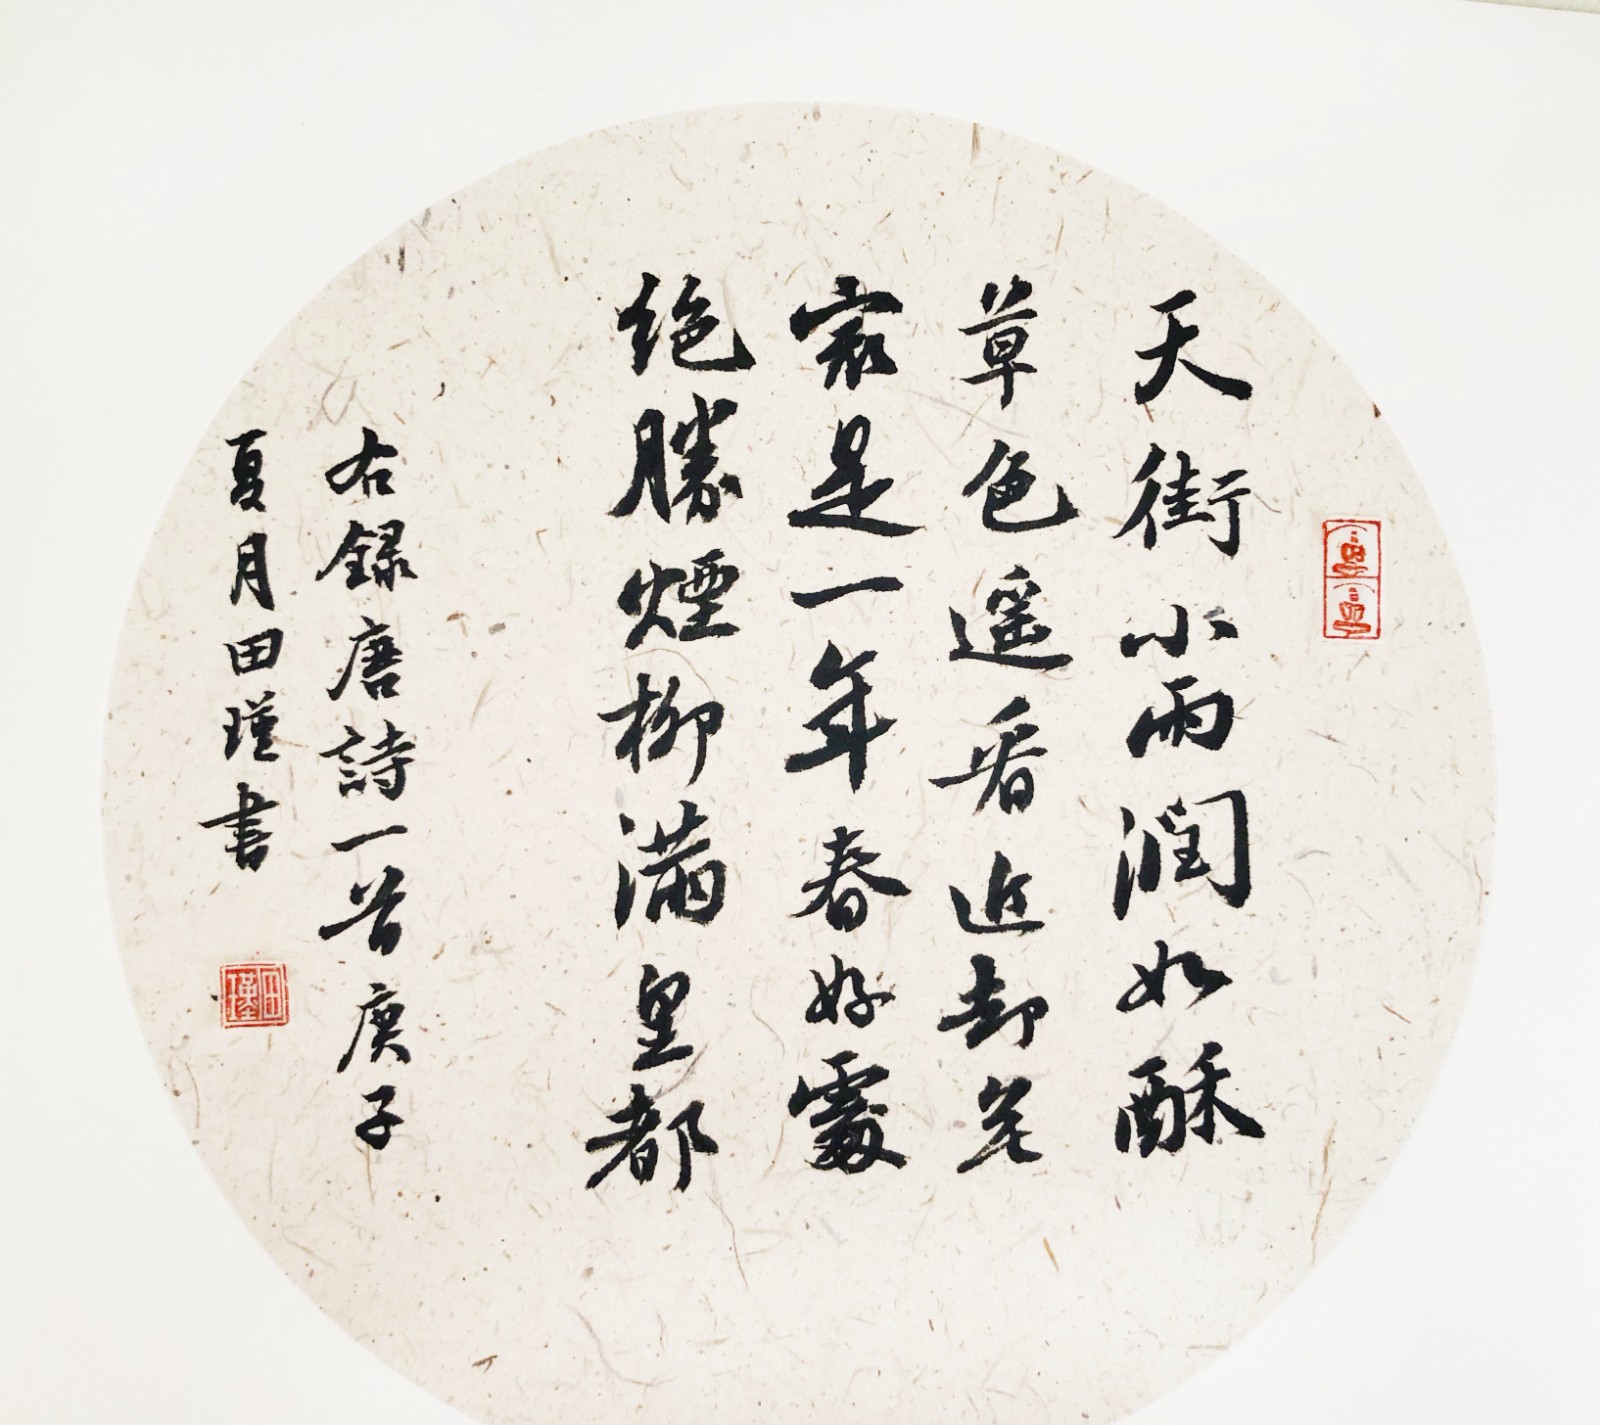 天街小雨潤如酥
草色遥看近却无
最是一年春好處
绝勝煙柳满皇都
右録唐詩一首庚子
夏月田瑾書
田瑾